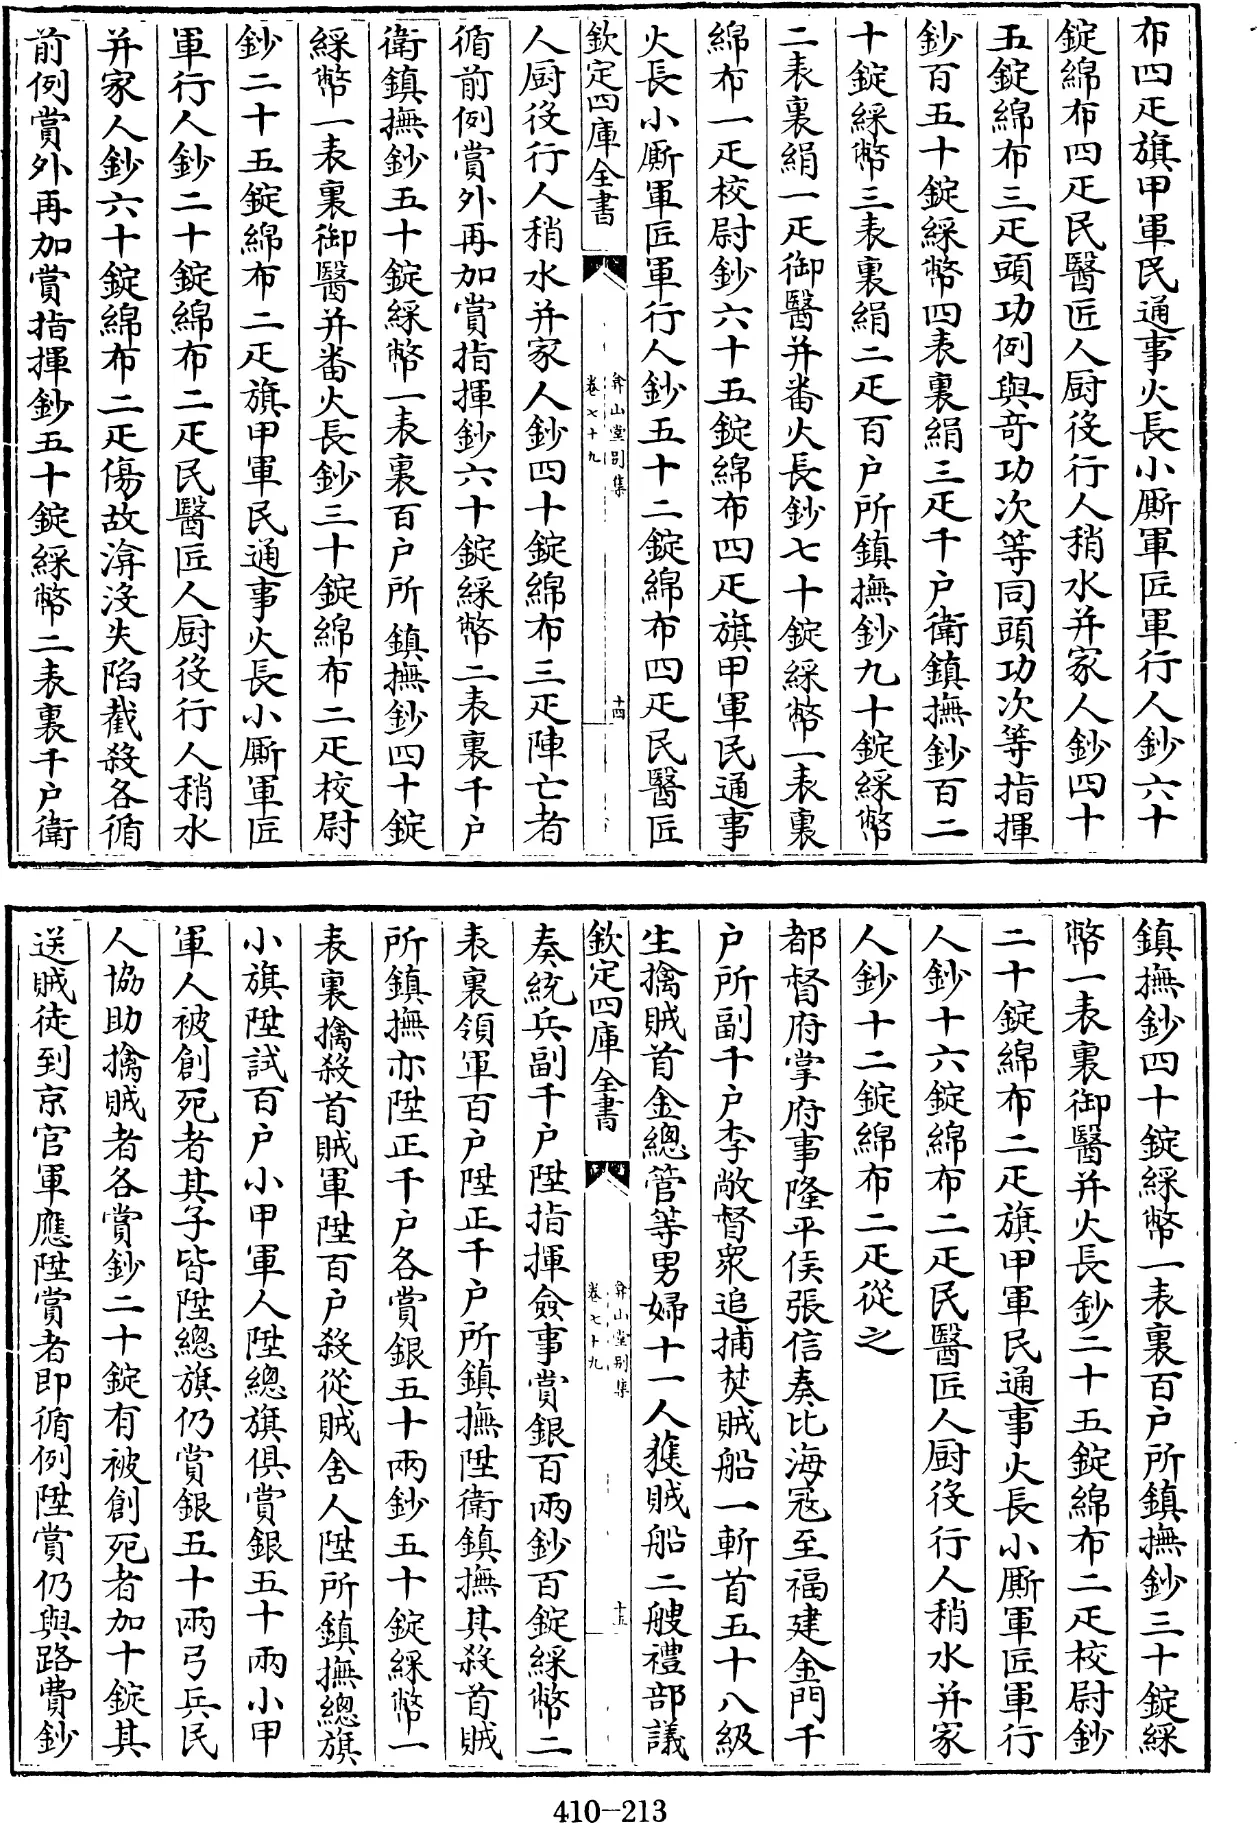 布四疋旗甲軍民通事火長小厮軍匠軍行人鈔六十
錠綿布四疋民醫匠人厨役行人稍水并家人鈔四十
五錠綿布三疋頭功例與竒功次等同頭功次等指揮
鈔百五十錠綵幣四表裏絹三疋千户衛鎮撫鈔百二
十錠綵幣三表裏絹二疋百户所鎮撫鈔九十錠綵幣
二表裏絹一疋御醫并畨火長鈔七十錠綵幣一表裏
綿布一疋校尉鈔六十五錠綿布四疋旗甲軍民通事
火長小厮軍匠軍行人鈔五十二錠綿布四疋民醫匠
欽定四庫全書
弇山堂别集
卷七十九
十四
人厨役行人稍水并家人鈔四十錠綿布三疋陣亡者
循前例賞外再加賞指揮鈔六十錠綵幣二表裏千户
衛鎮撫鈔五十錠綵幣一表裏百户所鎮撫鈔四十錠
綵幣一表裏御醫并畨火長鈔三十錠綿布二疋校尉
鈔二十五錠綿布二疋旗甲軍民通事火長小厮軍匠
軍行人鈔二十錠綿布二疋民醫匠人厨役行人稍水
并家人鈔六十錠綿布二疋傷故渰没失陷截殺各循
前例賞外再加賞指揮鈔五十錠綵幣二表裏千户衛
鎮撫鈔四十錠綵幣一表裏百户所鎮撫鈔三十錠綵
幣一表裏御醫并火長鈔二十五錠綿布二疋校尉鈔
二十錠綿布二疋旗甲軍民通事火長小厮軍匠軍行
人鈔十六錠綿布二疋民醫匠人厨役行人稍水并家
人鈔十二錠綿布二疋從之
都督府掌府事隆平侯張信奏比海冦至福建金門千
户所副千户李敞督衆追捕焚賊船一斬首五十八級
生擒賊首金總管等男婦十一人獲賊船二艘禮部議
欽定四庫全書
弇山堂别集
卷七十九
十五
奏統兵副千户陞指揮僉事賞銀百兩鈔百錠綵幣二
表裏領軍百户陞正千户所鎮撫陞衛鎮撫其殺首賊
所鎮撫亦陞正千户各賞銀五十兩鈔五十錠綵幣一
表裏擒殺首賊軍陞百户殺從賊舍人陞所鎮撫總旗
小旗陞試百户小甲軍人陞總旗俱賞銀五十兩小甲
軍人被創死者其子皆陞總旗仍賞銀五十兩弓兵民
人協助擒賊者各賞鈔二十錠有被創死者加十錠其
送賊徒到京官軍應陞賞者即循例陞賞仍與路費鈔
410-213